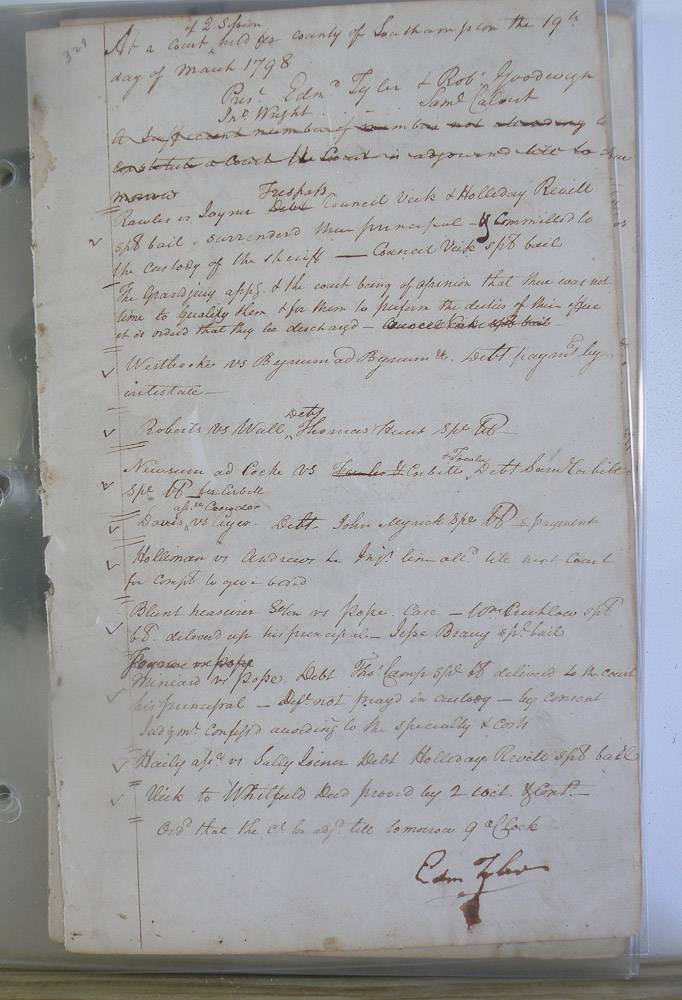 321
of 2 Session
At a Court held for County of Southampton the 19th
day of March 1798
Prest. Edmd Tyler & Robt Goodwyn
Jno. Wright Saml Calvert
A sufficient number of members not attending to
constitute a Court the Court is adjourned till to
morrow
Trespass
Rawles vs Joyner Debt Council Vick & Holleday Revill
spb bail surrenderd their principal & Committed to
the custody of the sheriff — Council Vick spb bail
The Grandjury appd. & the court being of opinion that there was not
time to qualify them & for them to perform the duties of their office
it is ordered that they be discharged — Council Vick spb bail
Westbrooke vs Bynum ad Bynum &c. Debt paymts by
intestate —
Debt
Roberts vs Wall, Thomas Hunt spl BB
& Towler
Newsum ad Cocke vs Corbitt Debt Saml Corbitt
spl BB for Corbitt
assee
Davis, vs Debt John Myrick spl BB & payment
Holliman vs Andrews In Injn till next Court
for compt to give bond
Blunt vs Pope Case — Wm spb
bb deliverd up his principal — Jesse Bracy spl bail
vs pope
Miniard vs Pope Debt Thos Camp spl bb deliverd to the court
his principal — Deft not prayd in custody — by consent
Judgmt confessd according to the specialty & costs
Haily asse vs Sally Joiner Debt Holleday Revill spb bail
Vick to Whitfield Deed proved by 2 wit. & Cont. —
Ordd that the Ct be adjd till tomorrow 9 oClock
Edm Tyler